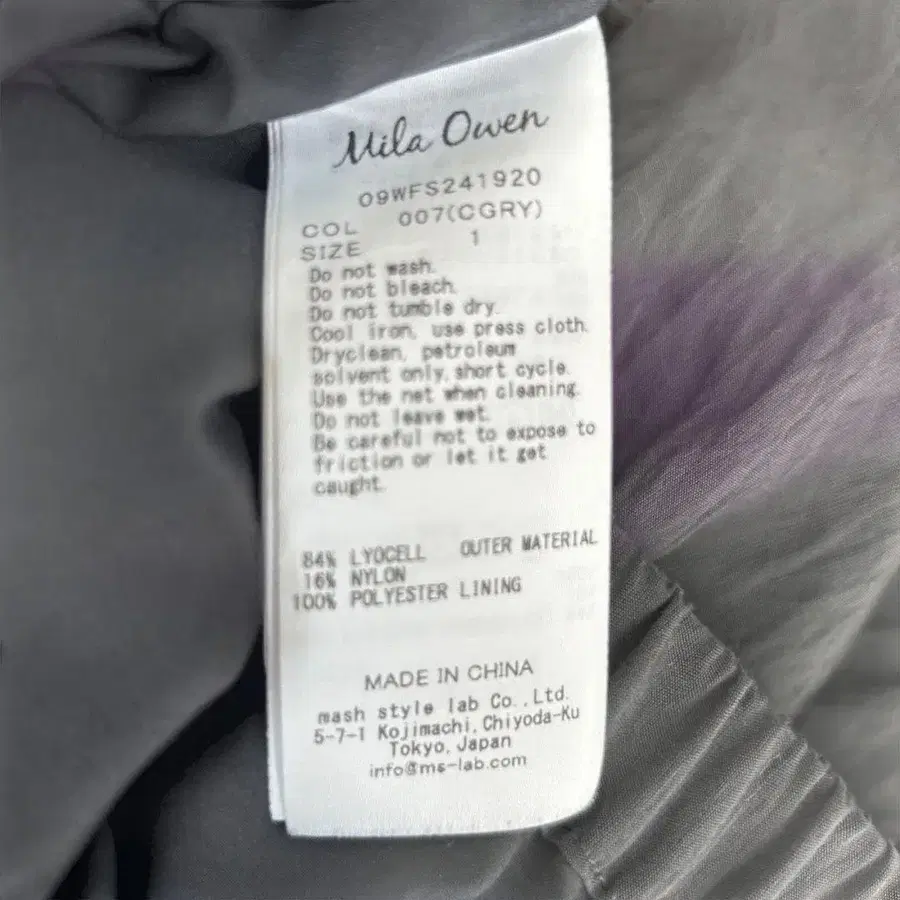 Mila Owen
09WFS241920
COL 007(CGRY)
SIZE 1
Do not wash.
Do not bleach.
Do not tumble dry.
Cool iron, use press cloth.
Dryclean, petroleum
solvent only, short cycle.
Use the net when cleaning.
Do not leave wet.
Be careful not to expose to
friction or let it get
caught.
84% LYOCELL OUTER MATERIAL
16% NYLON
100% POLYESTER LINING
MADE IN CHINA
mash style lab Co.,Ltd.
5-7-1 Kojimachi, Chiyoda-Ku
Tokyo, Japan
info@ms-lab.com